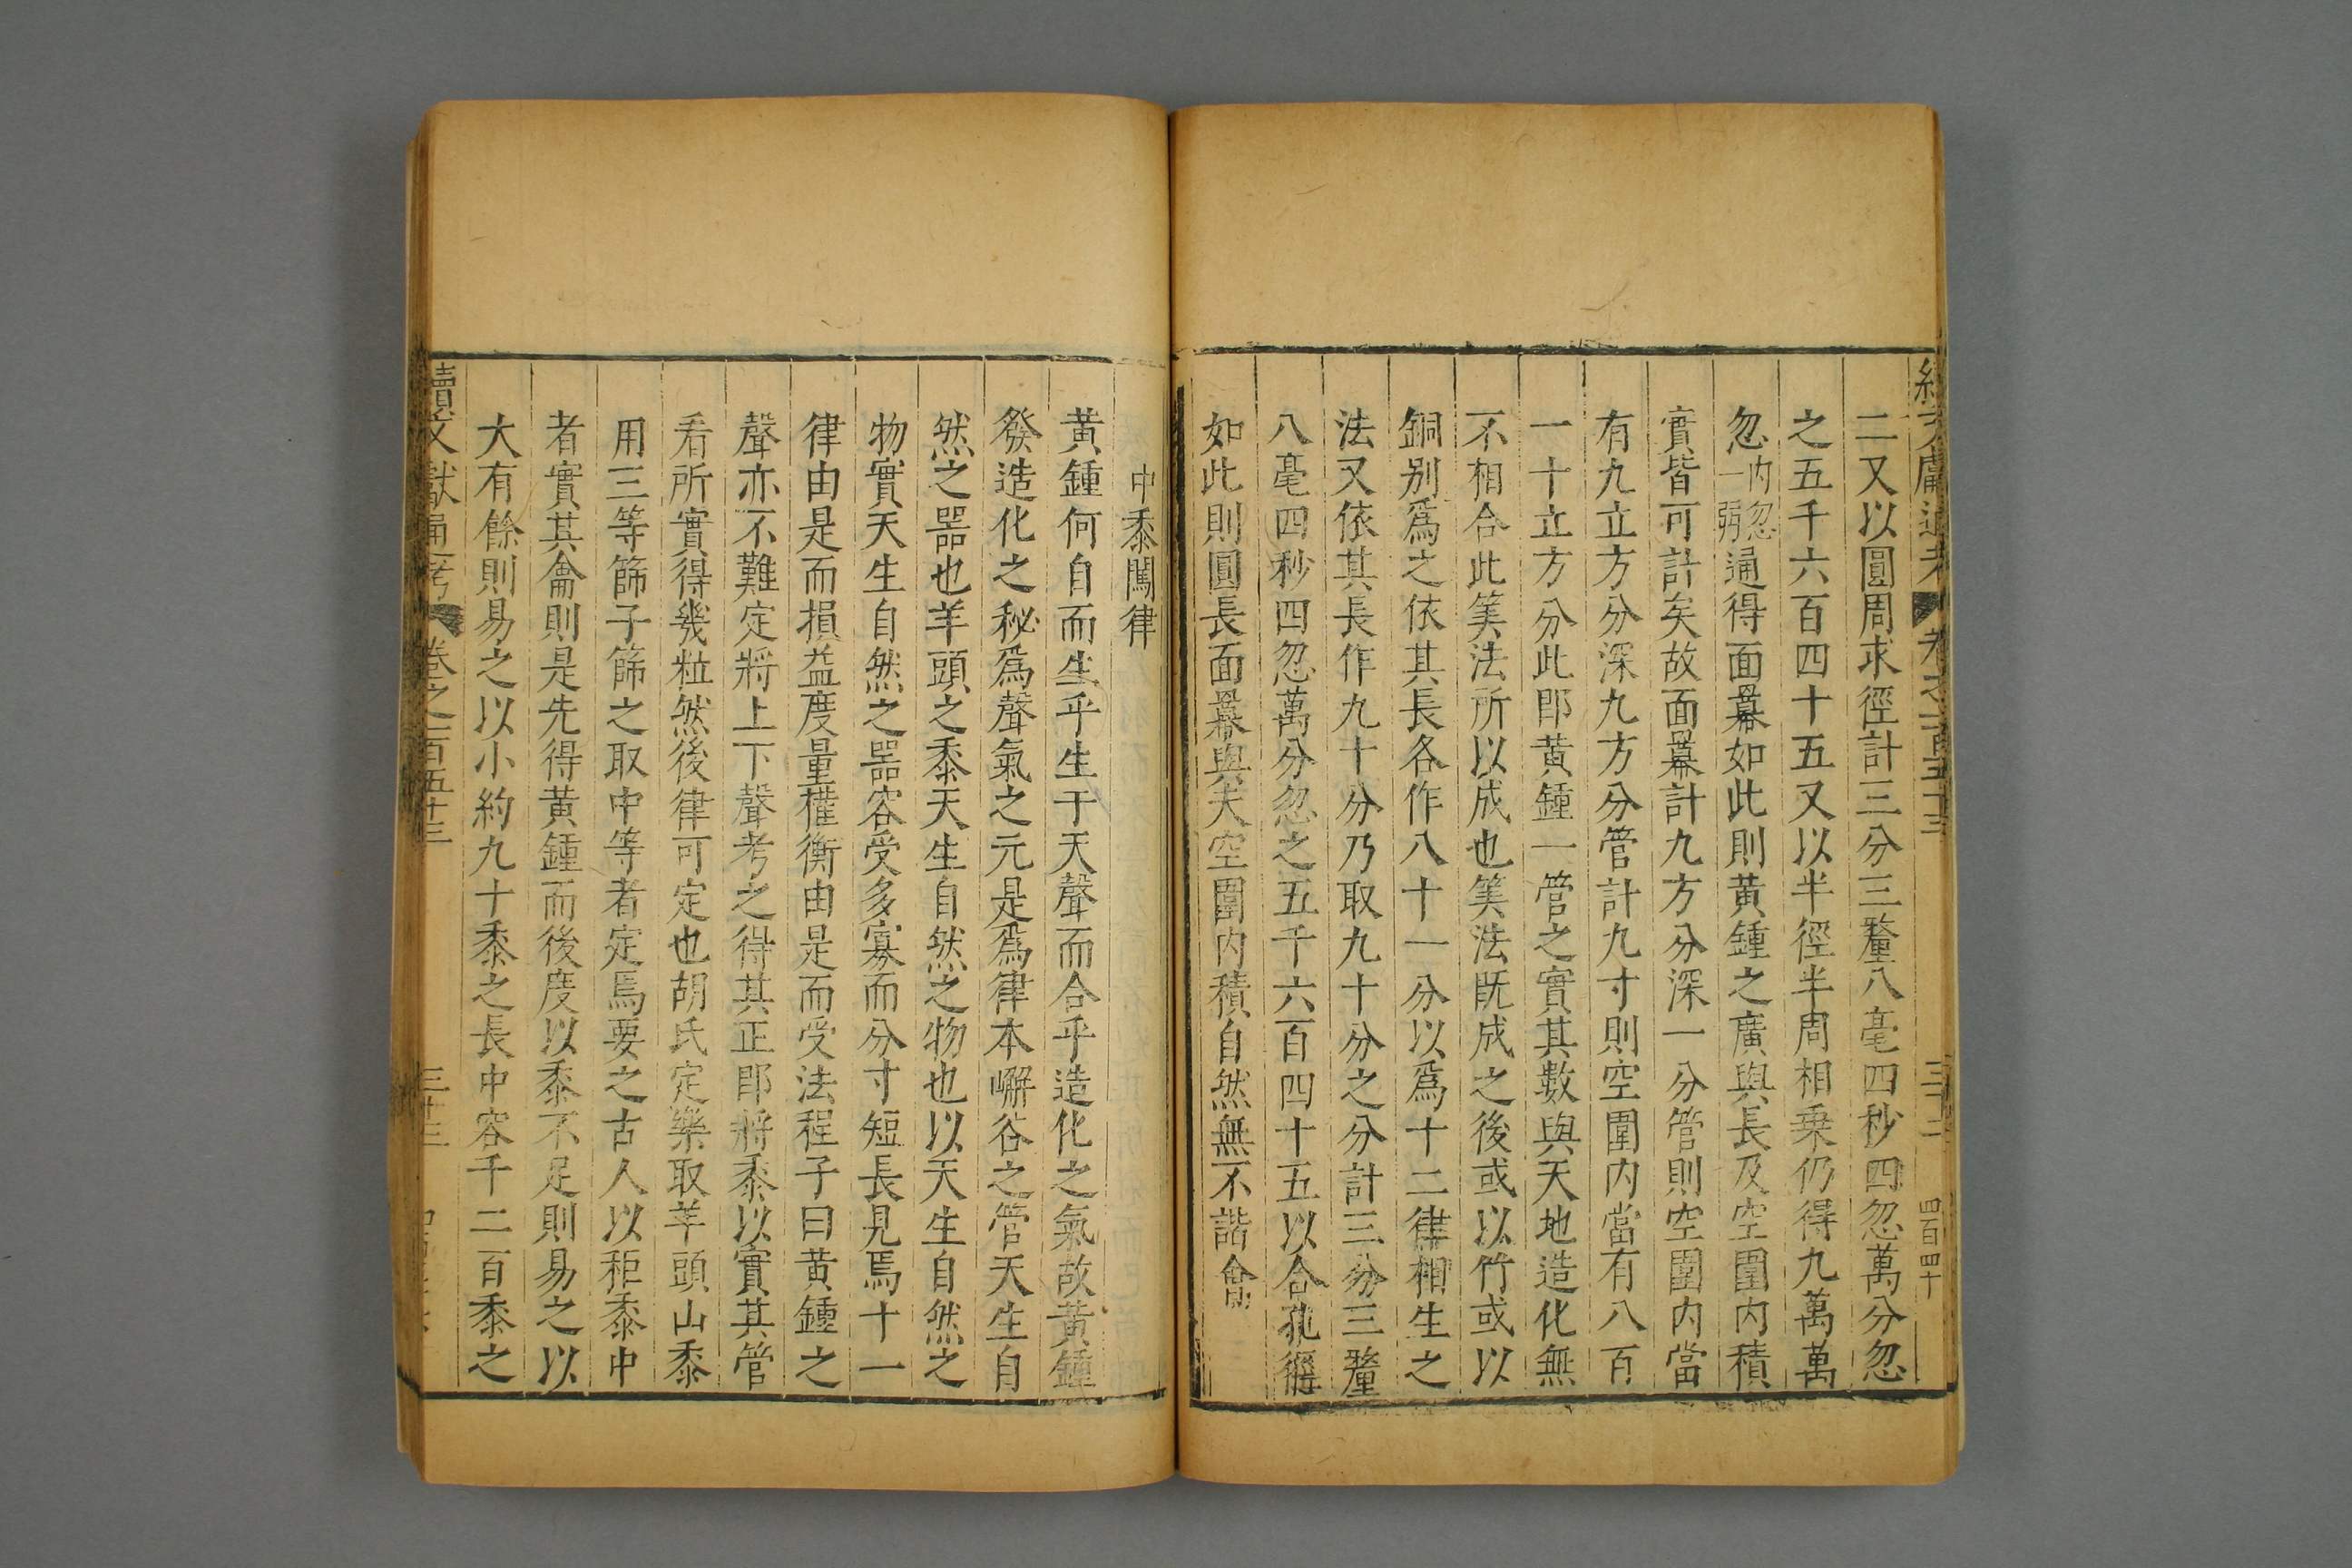 續文獻通考 卷之一百五十三 三十二 四百四十
二又以圓周求徑計三分三釐八毫四秒四忽萬分忽
之五千六百四十五又以半徑半周相乗仍得九萬萬
忽内忽一弱通得面羃如此則黄鍾之廣與長及空圍内積
實皆可計矣故面羃計九方分深一分管則空圍内當
有九立方分深九方分管計九寸則空圍内當有八百
一十立方分此即黄鍾一管之實其數與天地造化無
不相合此筭法所以成也筭法既成之後或以竹或以
銅别爲之依其長各作八十一分以爲十二律相生之
法又依其長作九十分乃取九十分之分計三分三釐
八毫四秒四忽萬分忽之五千六百四十五以合孔徑
如此則圓長面羃與夫空圍内積自然無不諧會
中黍闖律
黄鍾何自而生乎生于天聲而合乎造化之氣故黄鍾
發造化之秘爲聲氣之元是爲律本嶰谷之管天生自
然之噐也羊頭之黍天生自然之物也以天生自然之
物實天生自然之噐容受多寡而分寸短長見焉十一
律由是而損益度量權衡由是而受法程子曰黄鍾之
聲亦不難定將上下聲考之得其正即將黍以實其管
看所實得幾粒然後律可定也胡氏定樂取羊頭山黍
用三等篩子篩之取中等者定焉要之古人以秬黍中
者實其龠則是先得黄鍾而後度以黍不足則易之以
大有餘則易之以小約九十黍之長中容千二百黍之
續文獻通考 卷之一百五十三 三十三